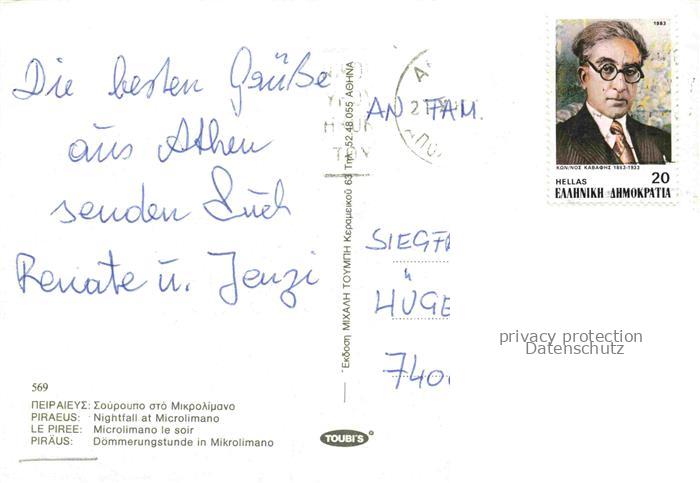 Die besten Grüße
aus Athen
senden Euch
Renate u. Jenzi
569
ΠΕΙΡΑΙΕΥΣ: Σούρουπο στό Μικρολίμανο
PIRAEUS: Nightfall at Microlimano
LE PIREE: Microlimano le soir
PIRÄUS: Dömmerungstunde in Mikrolimano
Έκδοση ΜΙΧΑΛΗ ΤΟΥΜΠΗ Κεραμεικού 63 Τηλ. 52.48.055 ΑΘΗΝΑ
TOUBI'S
AN FAM.
SIEGF
HÜGE
740
1983
ΚΩΝ/ΝΟΣ ΚΑΒΑΦΗΣ 1863-1933
HELLAS 20
ΕΛΛΗΝΙΚΗ ΔΗΜΟΚΡΑΤΙΑ
privacy protection
Datenschutz